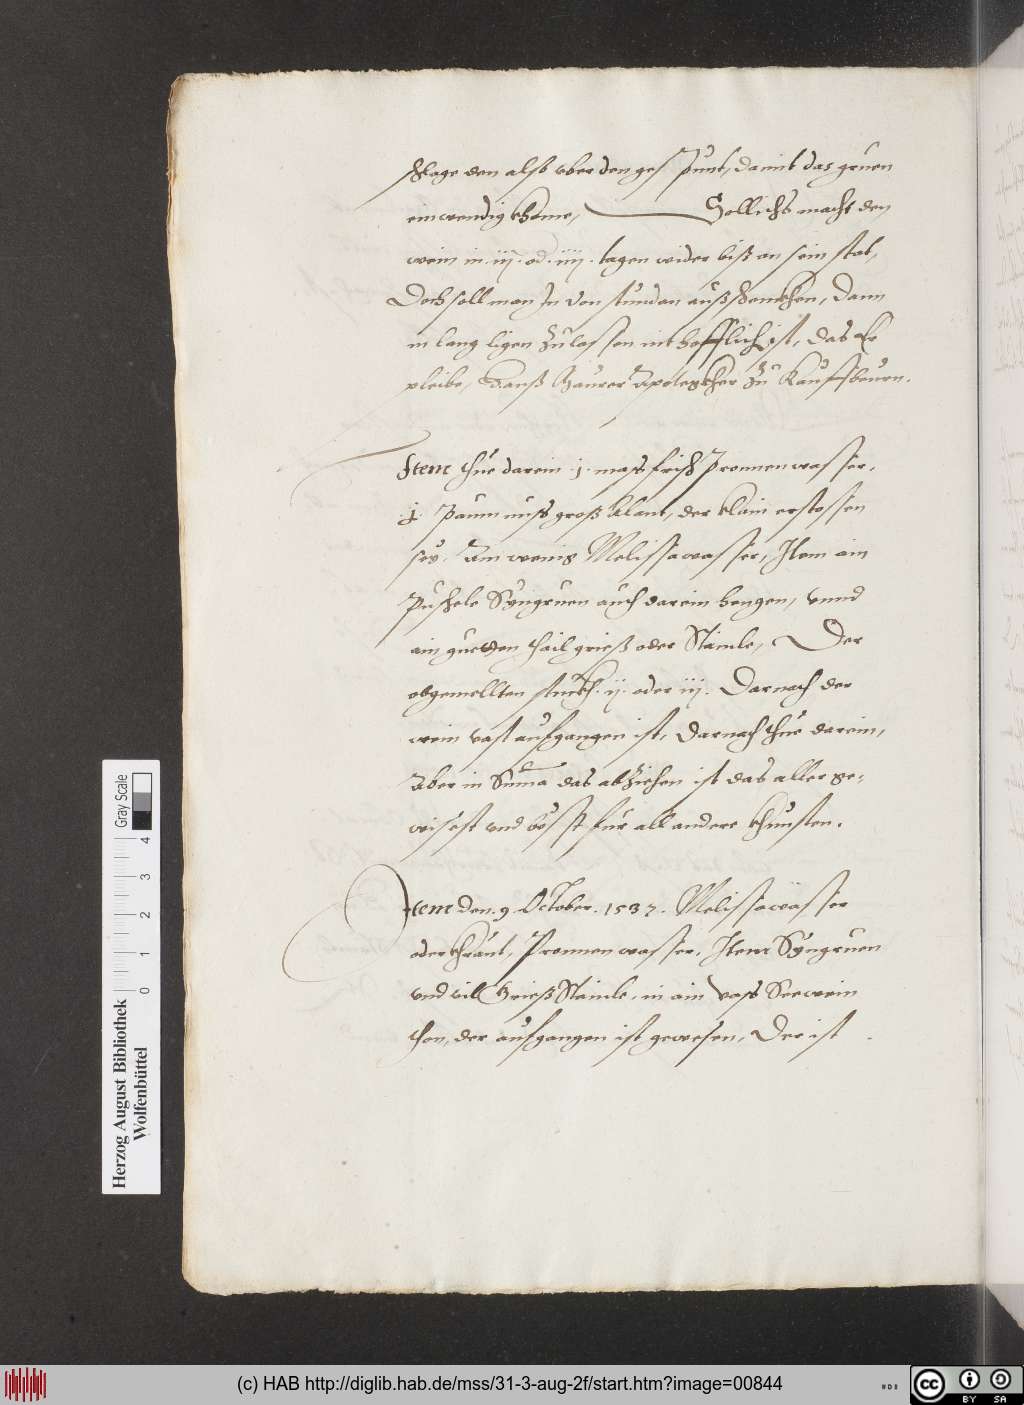 schlage den also vber den ges Punt, damit das gruen
einwendig khome, Sollichs macht den
wein in .iij. od .iiij. tagen wider biß an sein stat,
Doch soll man In von stundan außschenckhen, Dann
in lang ligen zulassen nit hofflich ist, das Er
pleibe, Hanß Haurer Apoteckher zu Kauffbeurn.
Item thue darein .j. mass frisch Pronnenwasser,
.j. Paumnuss groß Alant, der klain erstossen
sey. Am wenig Melissawasser, Item ain
Puschele Syngruen auch darein hengen, vnnd
ain guetten thail grieß oder Stainle, Der
obgemellten stuckh .ij. oder iij. Darnach der
wein vast aufgangen ist, Darnach thue darein,
Aber in Suma das abziehen ist das aller ge=
wisest vnd bösst für all andere khunsten.
Item den .9. October .1537. Melissawasser
oder khraut, Pronnenwasser, Item Syngruen
vnd vil Grieß Stainle, in ain vass Seewein
thon, der aufgangen ist gewesen, Der ist
Herzog August Bibliothek
Wolfenbüttel
0 1 2 3 4
Gray Scale
(c) HAB http://diglib.hab.de/mss/31-3-aug-2f/start.htm?image=00844
cc
BY SA